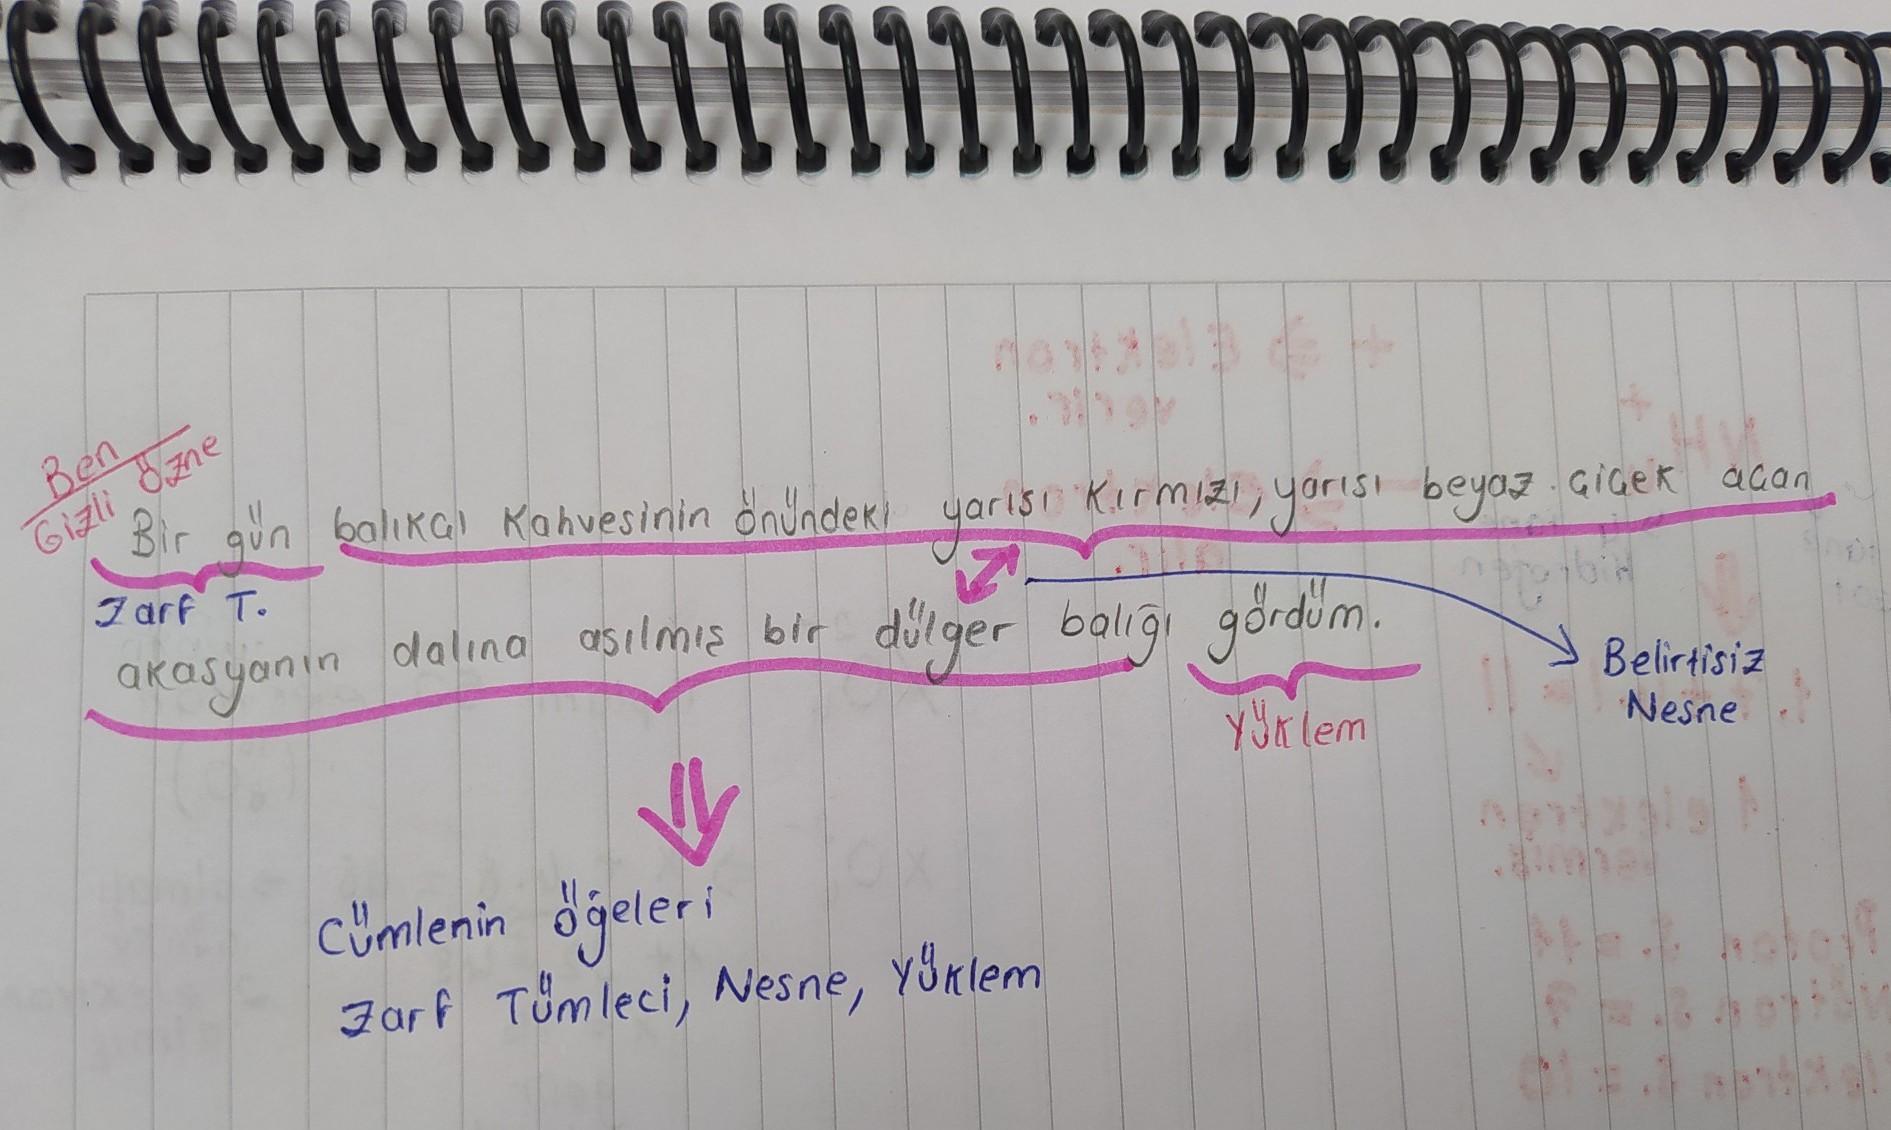 Ben
Gizli Özne
Bir gün balıkçı Kahvesinin önündeki yarısı Kırmızı, yarısı beyaz çiçek açan
Zarf T.
akasyanın dalına asılmış bir dülger balığı gördüm.
Belirtisiz
Nesne
Yüklem
Cümlenin öğeleri
Zarf Tümleci, Nesne, Yüklem